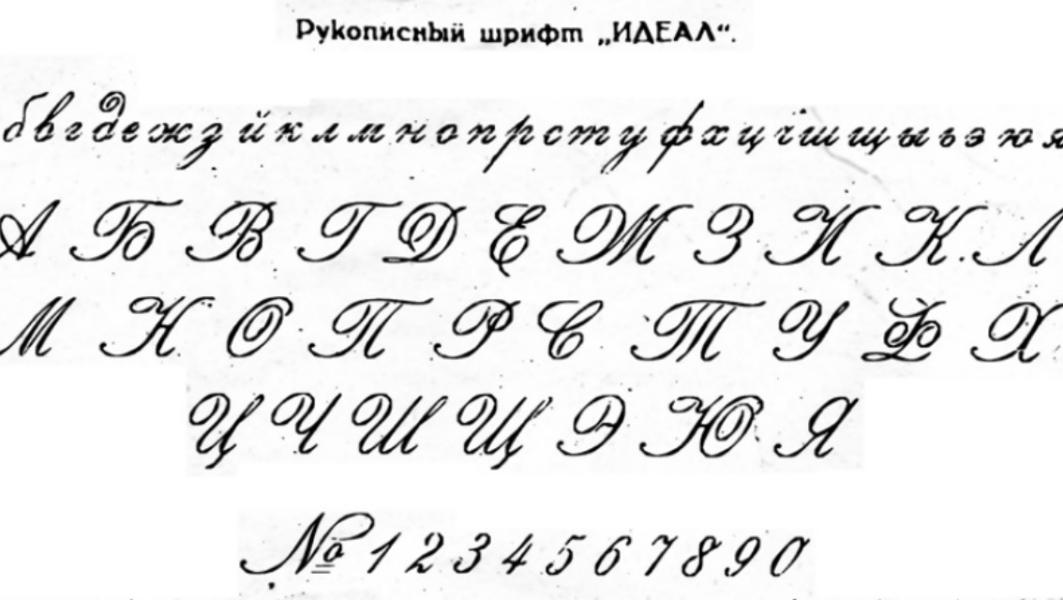 Рукописный шрифт „ИДЕАЛ“.
б в г д е ж з й к л м н о п р с т у ф х ц ч ш щ ы ь э ю я
А Б В Г Д Е Ж З И К Л
М Н О П Р С Т У Ф Х
Ц Ч Ш Щ Э Ю Я
№ 1 2 3 4 5 6 7 8 9 0